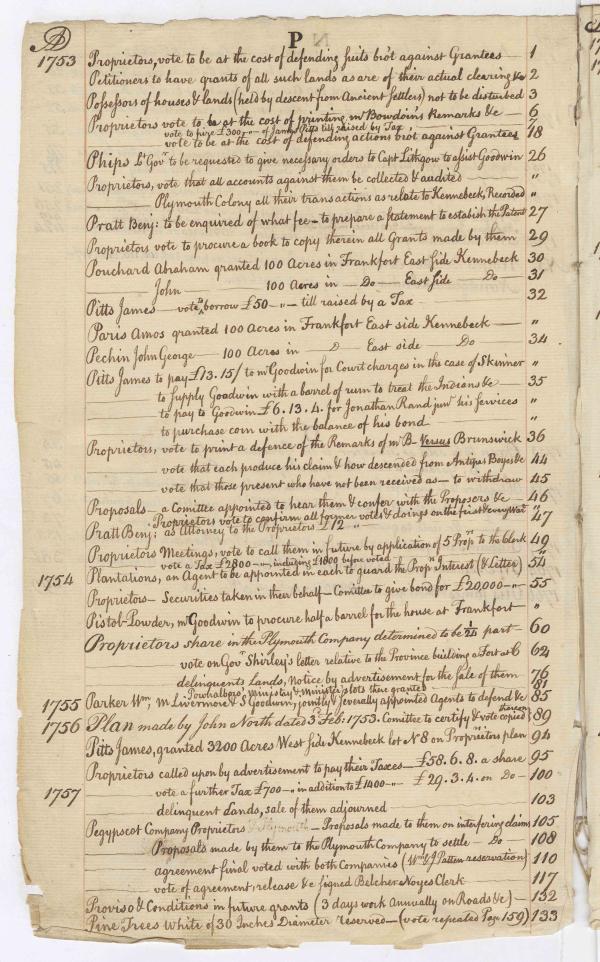 AD
P
1753 Proprietors, vote to be at the cost of defending suits bro't against Grantees — 1
Petitioners to have grants of all such lands as are of their actual clearing &c 2
Possessors of houses & lands (held by descent from Ancient Settlers) not to be disturbed 3
Proprietors vote to be at the cost of printing mr Bowdoin's Remarks &c — 6
vote to hire £300 — of James Pitts till raised by Tax 7
vote to be at the cost of defending actions bro't against Grantees 18
Phips Lt Govr to be requested to give necessary orders to Capt Lithgow to assist Goodwin 26
Proprietors, vote that all accounts against them be collected & audited — "
— Plymouth Colony all their transactions as relate to Kennebeck, Recorded "
Pratt Benj: to be enquired of what fee — to prepare a statement to establish the Patent 27
Proprietors vote to procure a book to copy therein all Grants made by them 29
Pouchard Abraham granted 100 Acres in Frankfort East side Kennebeck 30
— John — 100 Acres in — Do — East side — Do — 31
Pitts James — vote to borrow £50 — " — till raised by a Tax — 32
Paris Amos granted 100 Acres in Frankfort East side Kennebeck — "
Pechin John George — 100 Acres in — D — East side — Do — 34
Pitts James to pay £13.15/ to mr Goodwin for Court charges in the case of Skinner "
to supply Goodwin with a barrel of rum to treat the Indians &c — 35
to pay to Goodwin £6.13.4. for Jonathan Rand junr his services "
to purchase corn with the balance of his bond — "
Proprietors, vote to print a defence of the Remarks of mr B— Versus Brunswick 36
vote that each produce his claim & how descended from Antipas Boyes &c 44
vote that those present who have not been received as — to withdraw 45
Proposals — a Comittee appointed to hear them & confer with the Proposers &c — 46
Proprietors vote to confirm all former votes & doings on the first & every Wed "
Pratt Benj: as Attorney to the Proprietors £12 " 47
Proprietors Meetings, vote to call them in future by application of 5 Proprs to the clerk 49
vote a Tax £2800 — " — including £1800 before voted "
1754 Plantations, an Agent to be appointed in each to guard the Proprs Interest (& Letter) 54
Proprietors — Securities taken in their behalf — Comittee to give bond for £20,000 — " — 55
Pistol-Powder, mr Goodwin to procure half a barrel for the house at Frankfort "
Proprietors share in the Plymouth Company determined to be 1/24 part — 60
vote on Govr Shirley's letter relative to the Province building a Fort at C 62
delinquents Lands, Notice by advertisement for the sale of them — 76
Pownalboro' Ministry & Ministers lots there granted — 181
1755 Parker Wm, m Livermore & S Goodwin, jointly & severally appointed Agents to defend &c 85
1756 Plan made by John North dated 3 Feb: 1753. Comittee to certify & vote thereon copied 89
Pitts James, granted 3200 Acres West side Kennebeck lot No 8 on Proprietors plan 94
Proprietors called upon by advertisement to pay their Taxes — £58.6.8. a share 95
1757 vote a further Tax £700 — " — in addition to £1400 — " — £29.3.4. on Do — 100
delinquent Lands, sale of them adjourned — 103
Pegypscot Company Proprietors — Proposals made to them on interfering claims 105
Proposals made by them to the Plymouth Company to settle — Do — 108
agreement final voted with both Companies (Wm & J Patten reservation) 110
vote of agreement, release &c signed Belcher Noyes Clerk — 117
Proviso & Conditions in future grants (3 days work Annually on Roads &c) — 132
Pine Trees White of 30 Inches Diameter reserved — (vote repeated Page 159) 133